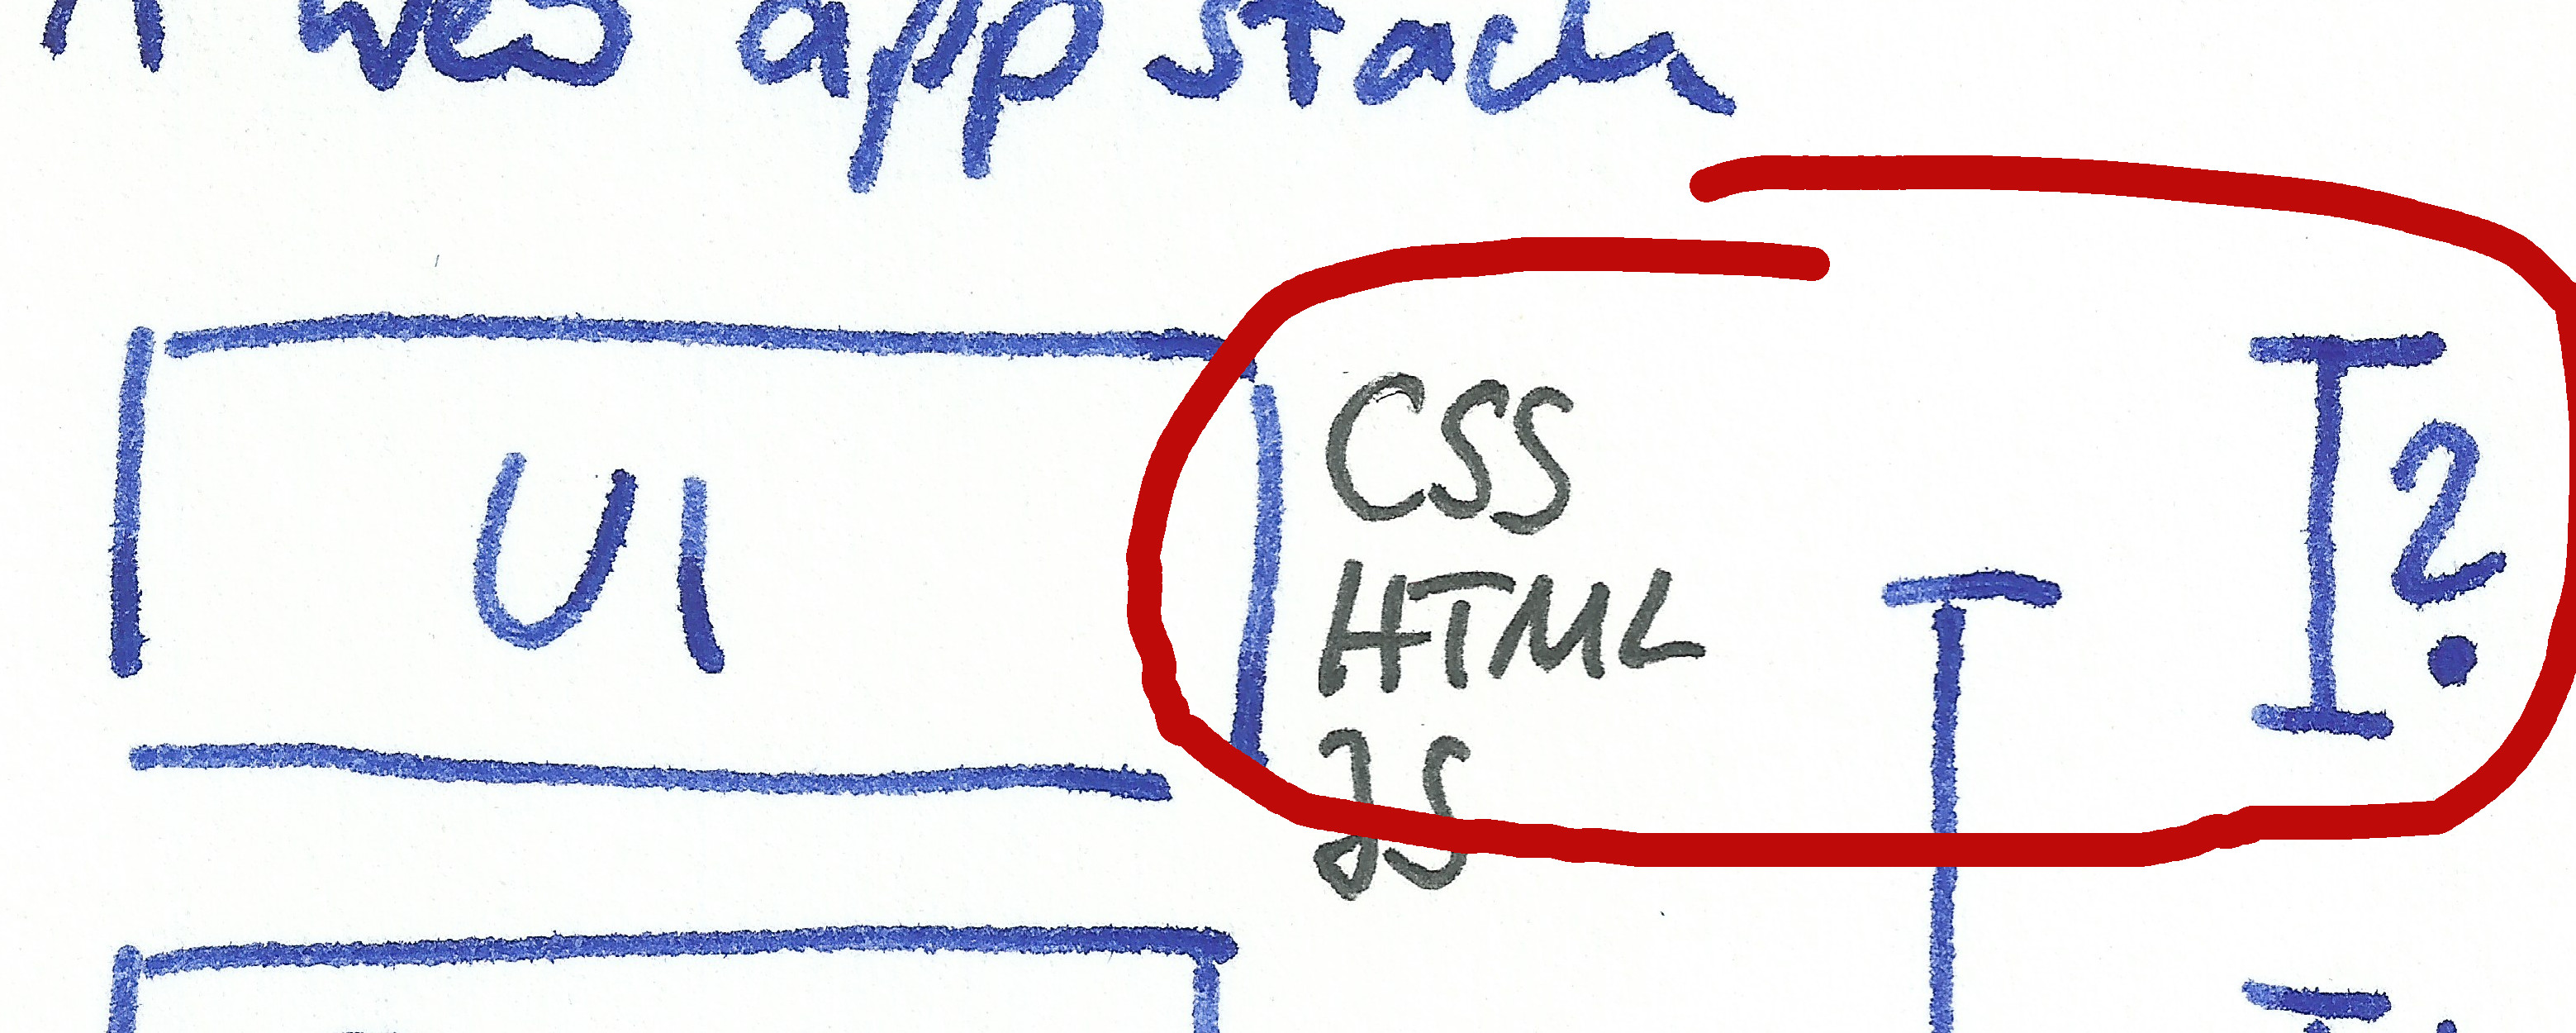 A web app stack
UI
CSS
HTML
JS
?